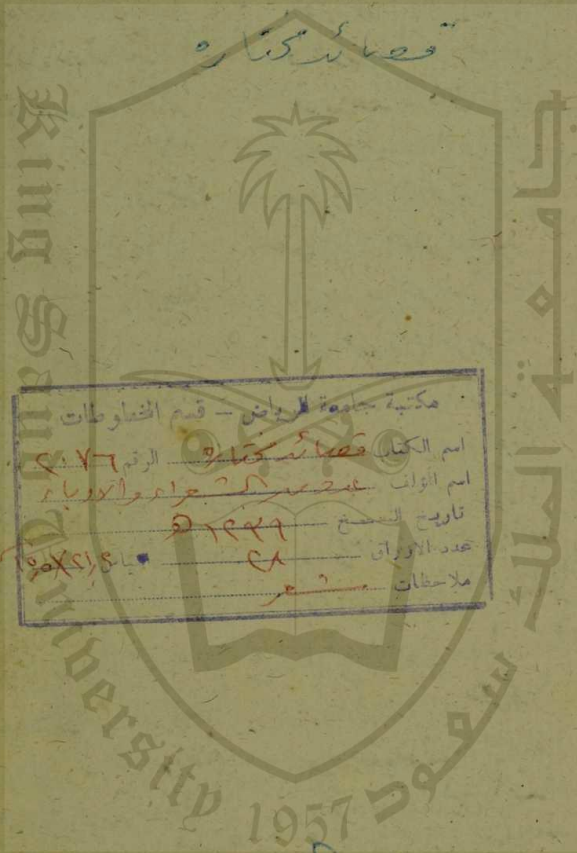 قصائد مختاره
مكتبة جامعة الرياض – قسم المخطوطات
اسم الكتاب قصائد مختاره الرقم ٢٠٧٦
اسم المؤلف عدد من الشعراء والأدباء
تاريخ النسخ ١٢٣٩ هـ
عدد الأوراق ٢٨
ملاحظات شعر
جامعة الملك سعود
King Saud University 1957